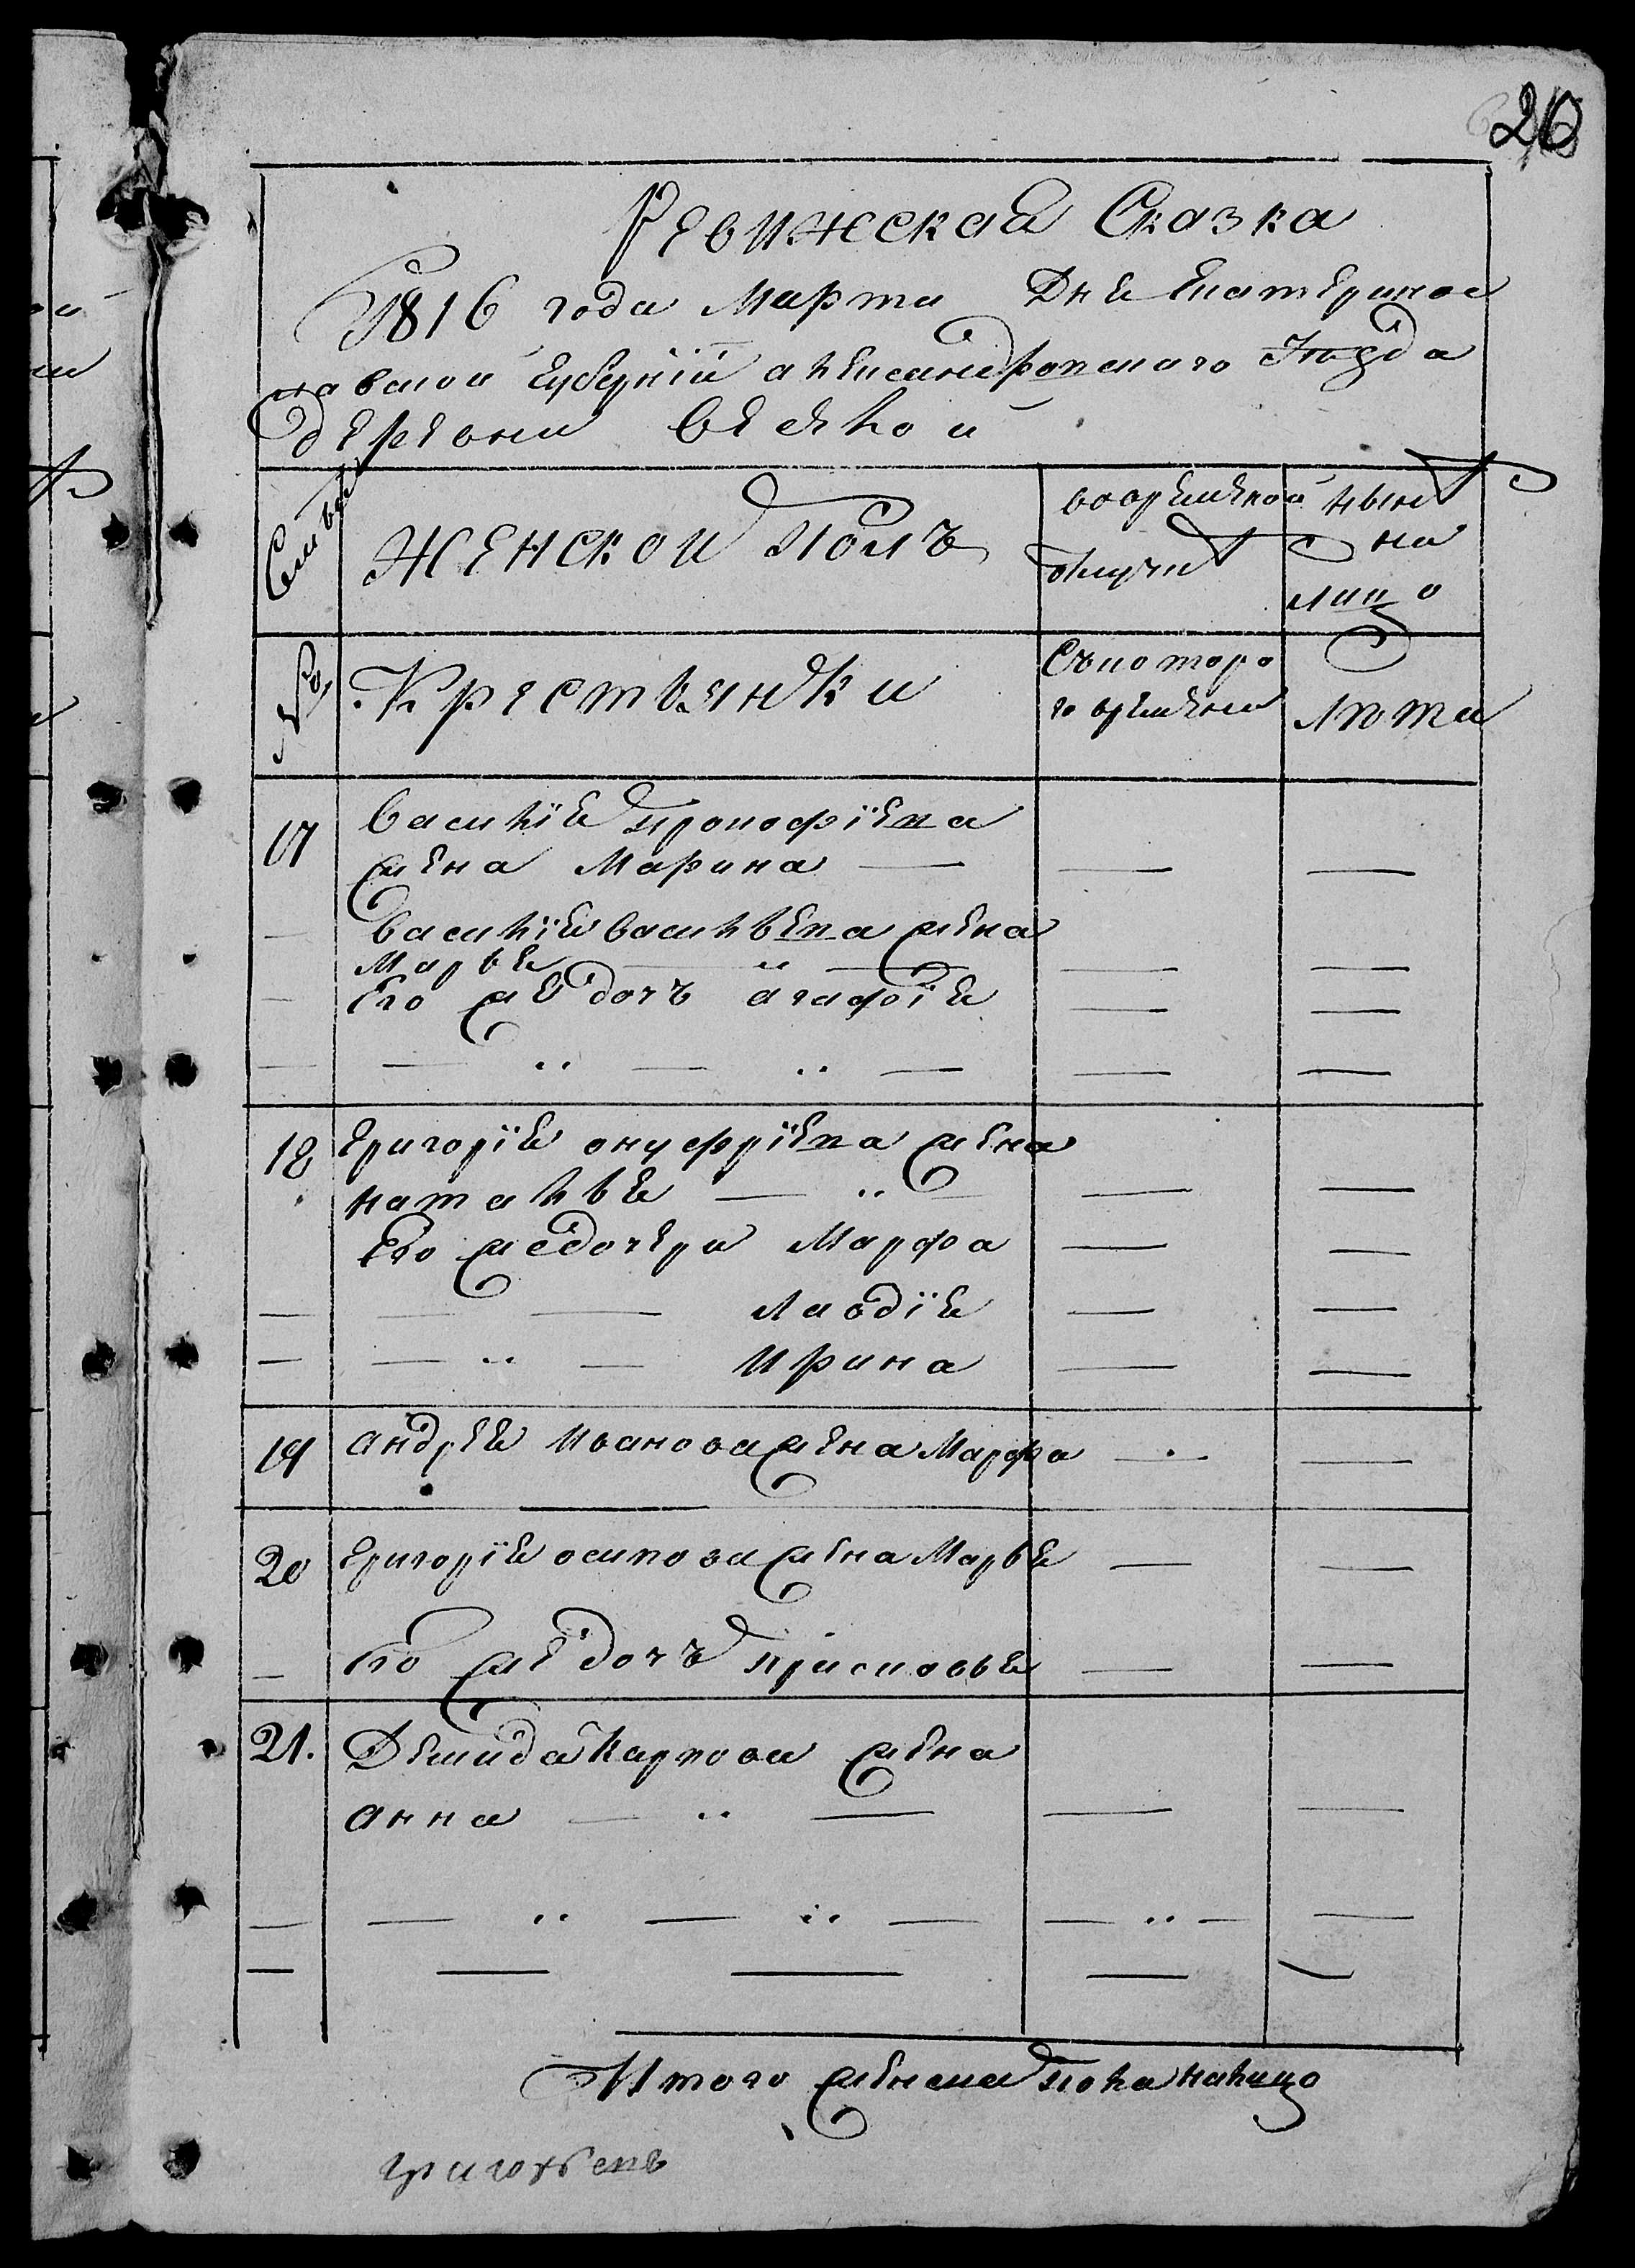 26
Ревижская Сказка
1816 года Марта Дня Екатеринос
лавской Губернїй александровского Уѣзда
Деревни Веселой
Семьи
Женской Полъ
во временной
отлучке
ныне
на
лицо
№
Крестьянки
Съ котора
го времени
Лѣта
17
Василїя прокофїева
жена Марина
Василїя Васильева жена
Марья
Его же дочъ агафїя
18
Григорїя онуфрїева жена
наталья
Его же дочери Марфа
Ирина
19
андрея Иванова жена Марфа
20
Григорїя осипова жена Марья
Его же дочъ присковья
21.
Демида Карпова жена
анна
Итого женска пола налицо